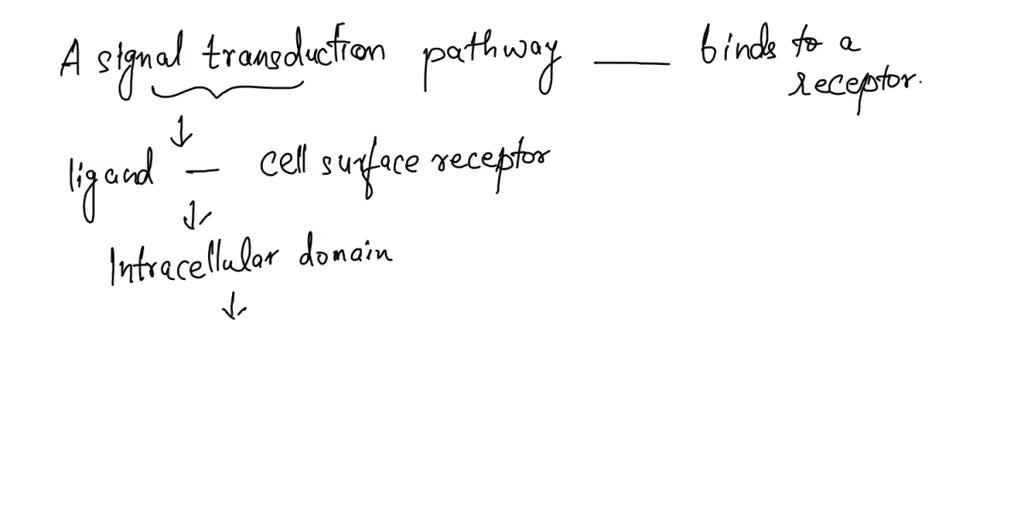 A signal transduction pathway —— binds to a
receptor.
↓
ligand — cell surface receptor
↓
Intracellular domain
↓